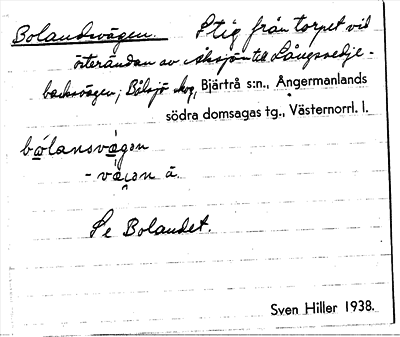 Bolandsvägen. Stig från torpet vid
österändan av Åksjön till Långsvedje-
backsvägen; Bålsjö skog, Bjärtrå s:n., Ångermanlands
södra domsagas tg., Västernorrl. l.
bólansvǽgən
- vǽgən ä.
Se Bolandet.
Sven Hiller 1938.